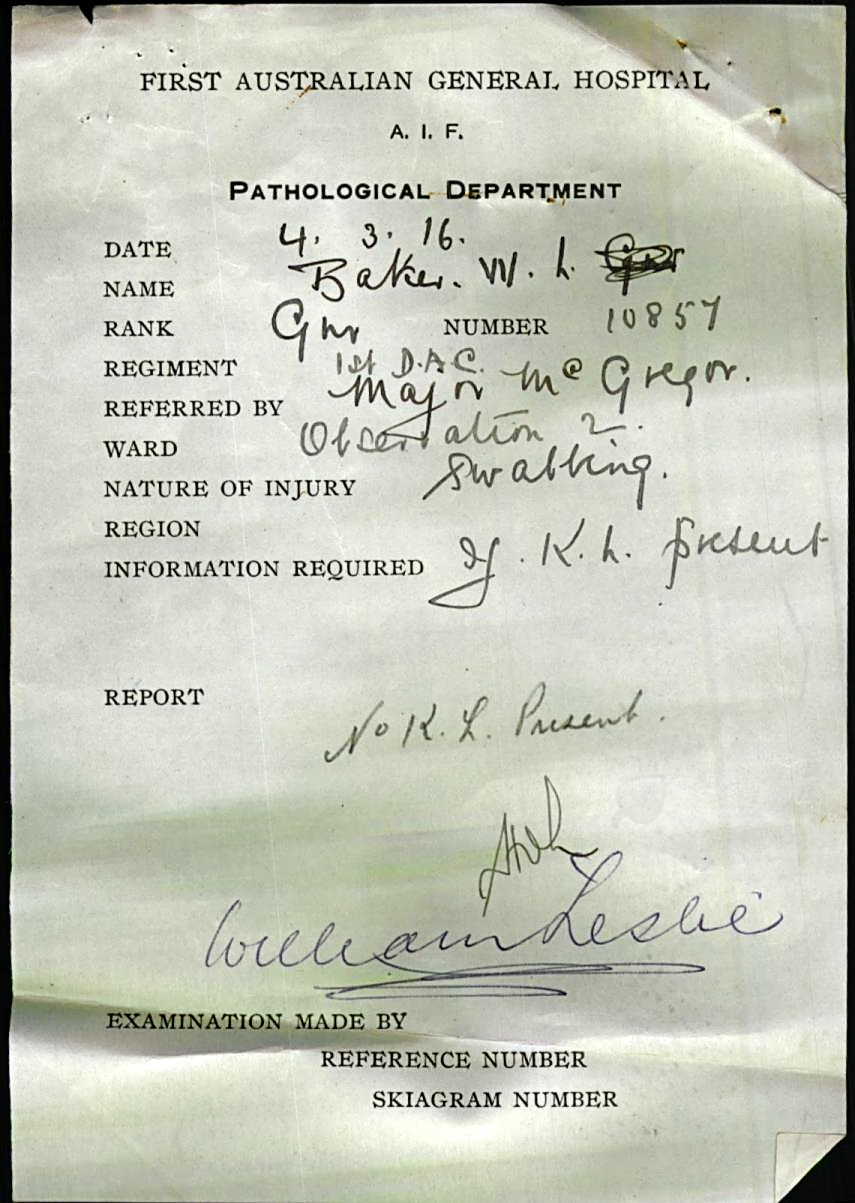 FIRST AUSTRALIAN GENERAL HOSPITAL
A. I. F.
PATHOLOGICAL DEPARTMENT
DATE 4. 3. 16.
NAME Baker. W. L.
RANK Gnr NUMBER 10857
REGIMENT 1st D.A.C.
REFERRED BY Major McGregor.
WARD Observation 2.
NATURE OF INJURY Swabbing.
REGION
INFORMATION REQUIRED If. K. L. present
REPORT
No K. L. Present.
William Leslie
EXAMINATION MADE BY
REFERENCE NUMBER
SKIAGRAM NUMBER